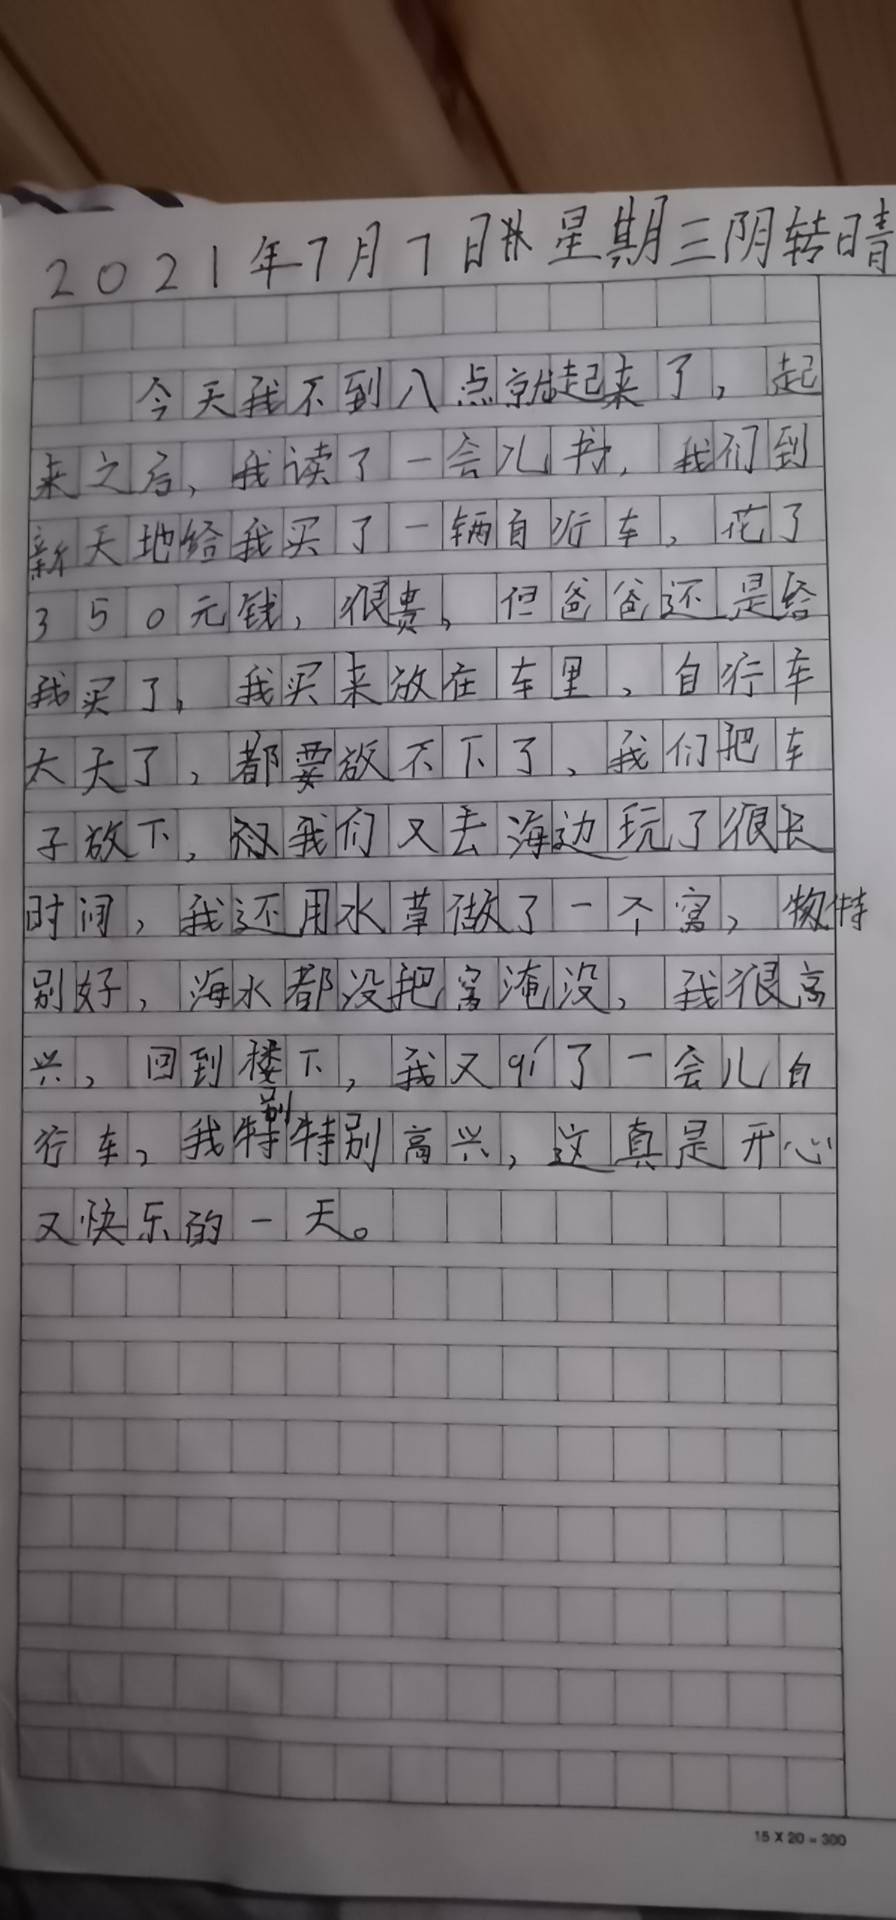 2021年7月7日 星期三阴转晴
今天我不到八点就起来了，起
来之后，我读了一会儿书，我们到
新天地给我买了一辆自行车，花了
350元钱，很贵，但爸爸还是给
我买了，我买来放在车里，自行车
太大了，都要放不下了，我们把车
子放下，我们又去海边玩了很长
时间，我还用水草做了一个窝，特
别好，海水都没把窝淹没，我很高
兴，回到楼下，我又qí了一会儿自
行车，我特别特别高兴，这真是开心
又快乐的一天。
15×20=300